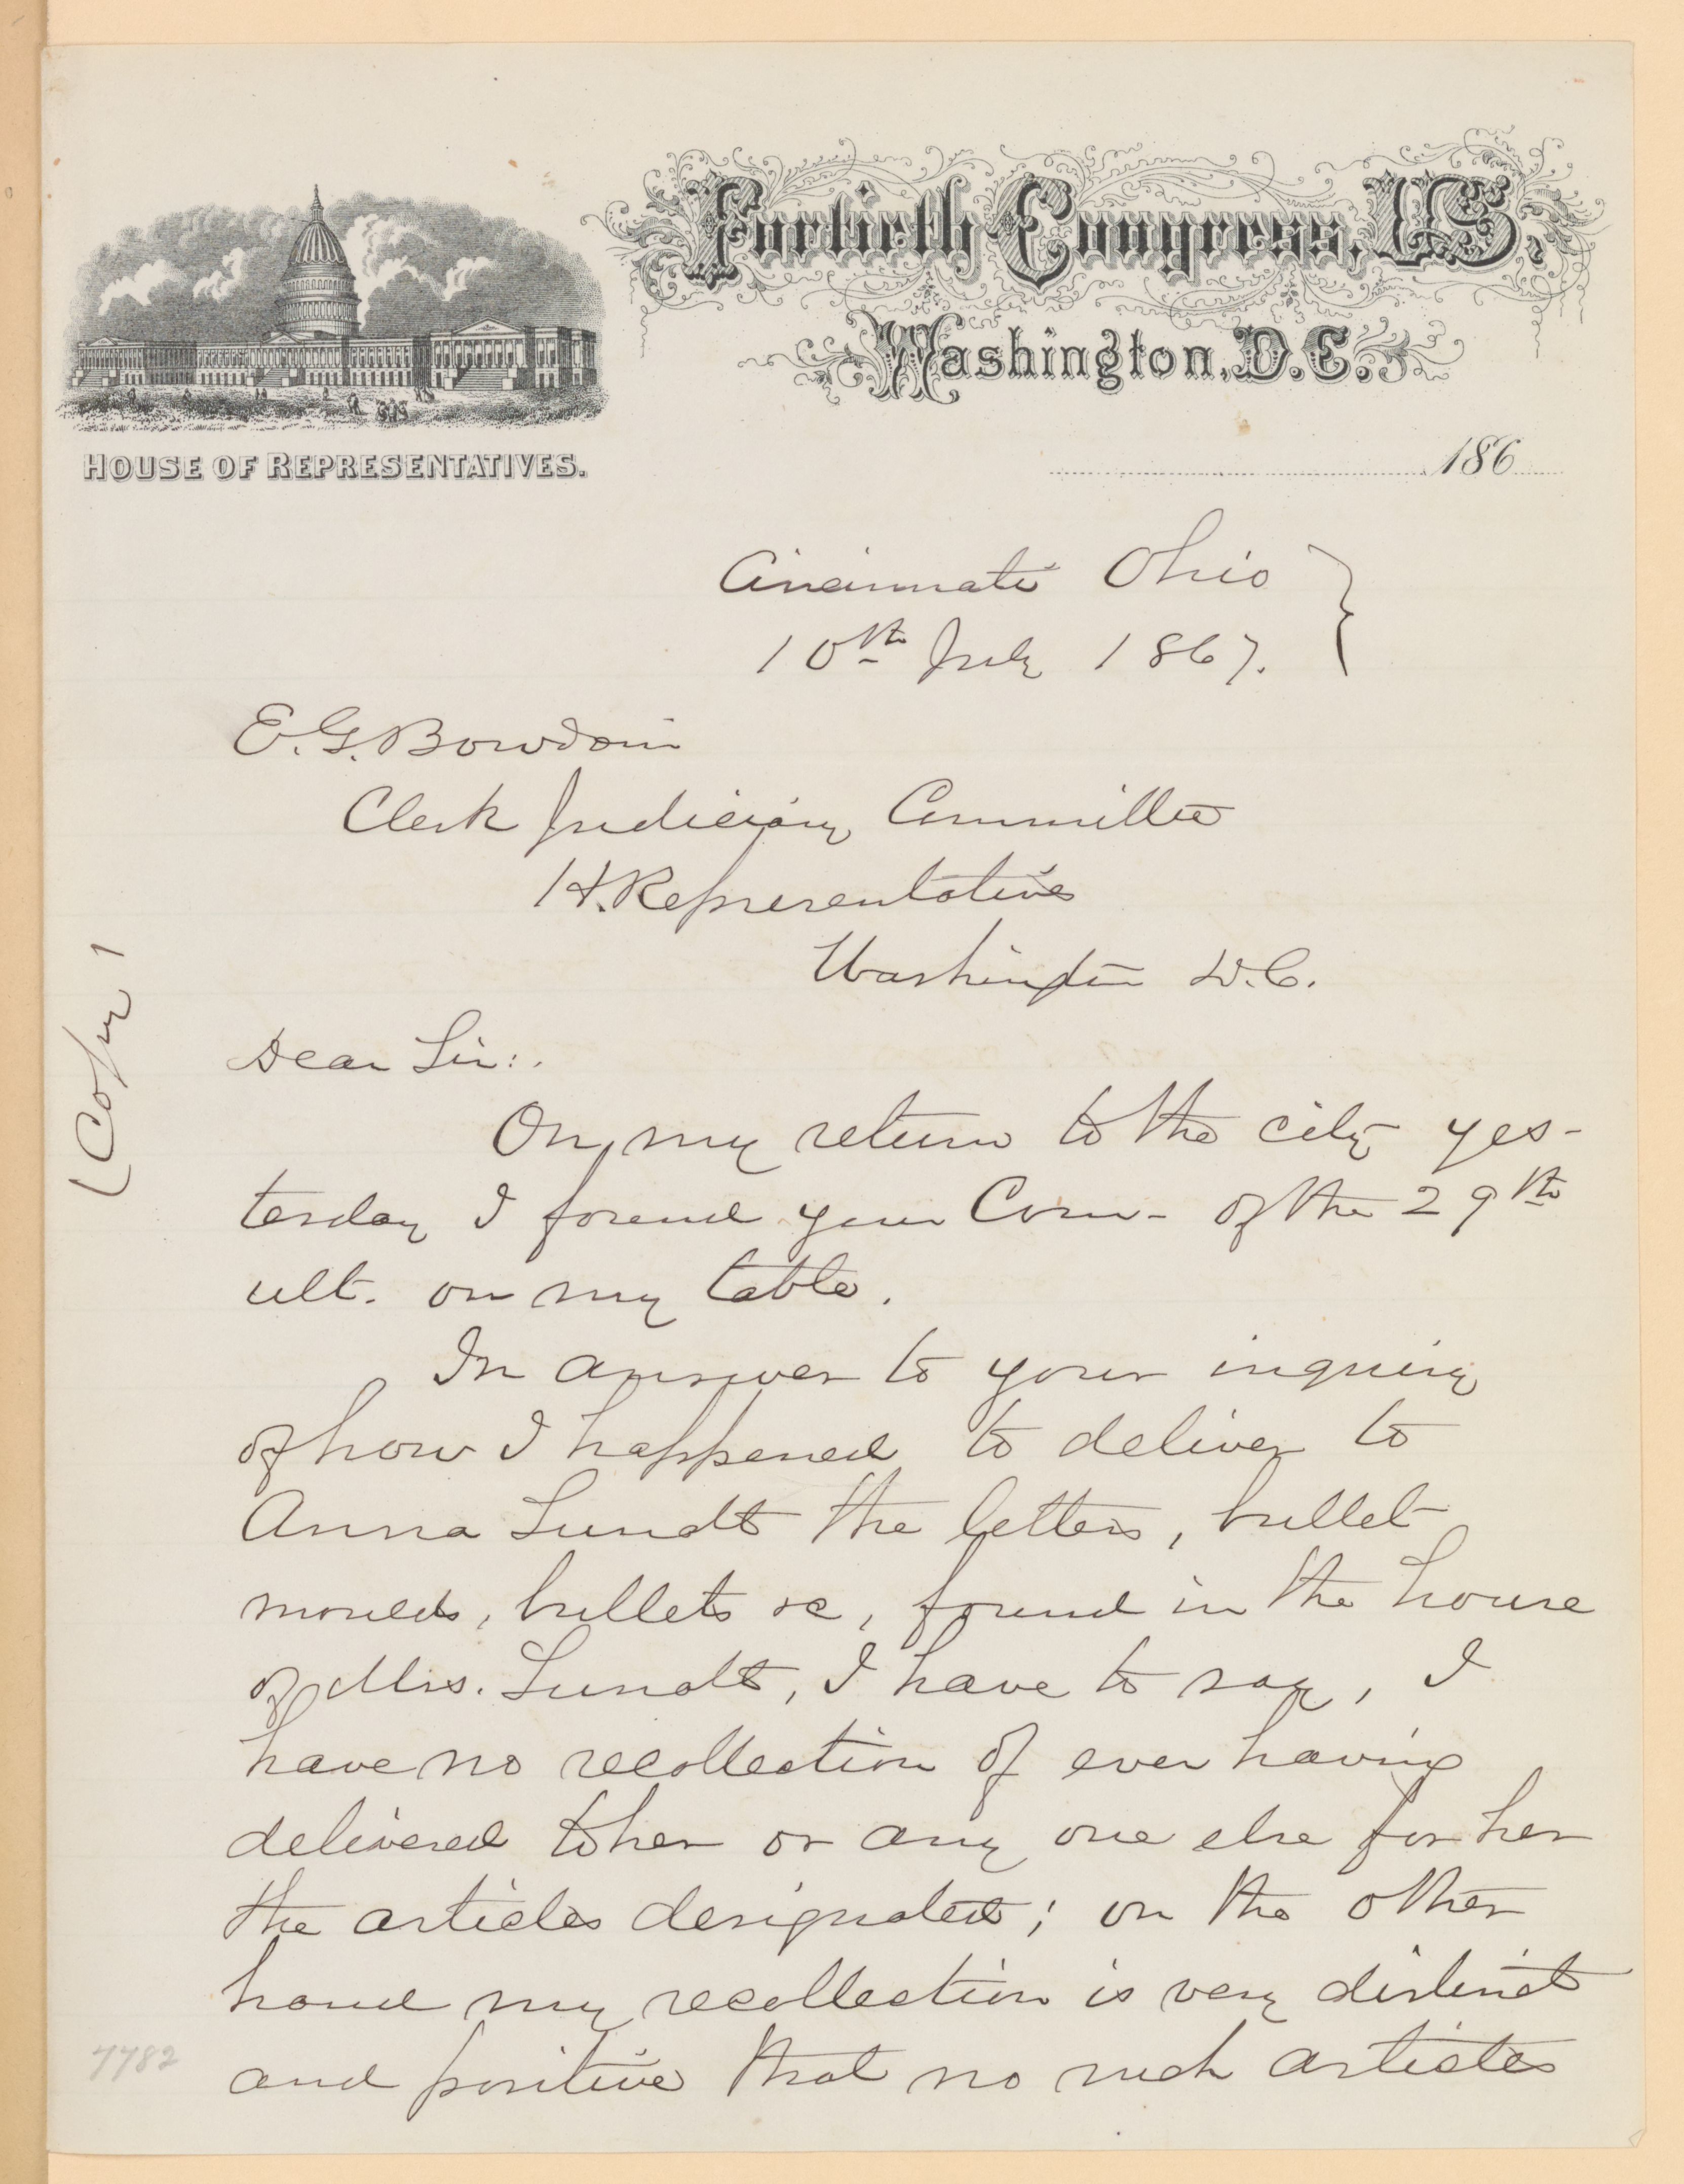 Fortieth Congress, U.S.
Washington, D.C.
HOUSE OF REPRESENTATIVES.
186
Cincinnati Ohio
10th July 1867.
E. G. Bowdoin
Clerk Judiciary Committee
H. Representatives
Washington D.C.
(Copy)
Dear Sir:.
On my return to the city yes-
terday I found your Com- of the 29th
ult. on my table.
In answer to your inquiry
of how I happened to deliver to
Anna Sundt the letters, bullet
moulds, bullets &c, found in the house
of Mrs. Sundt, I have to say, I
have no recollection of ever having
delivered to her or any one else for her
the articles designated; on the other
hand my recollection is very distinct
and positive that no such articles
7782